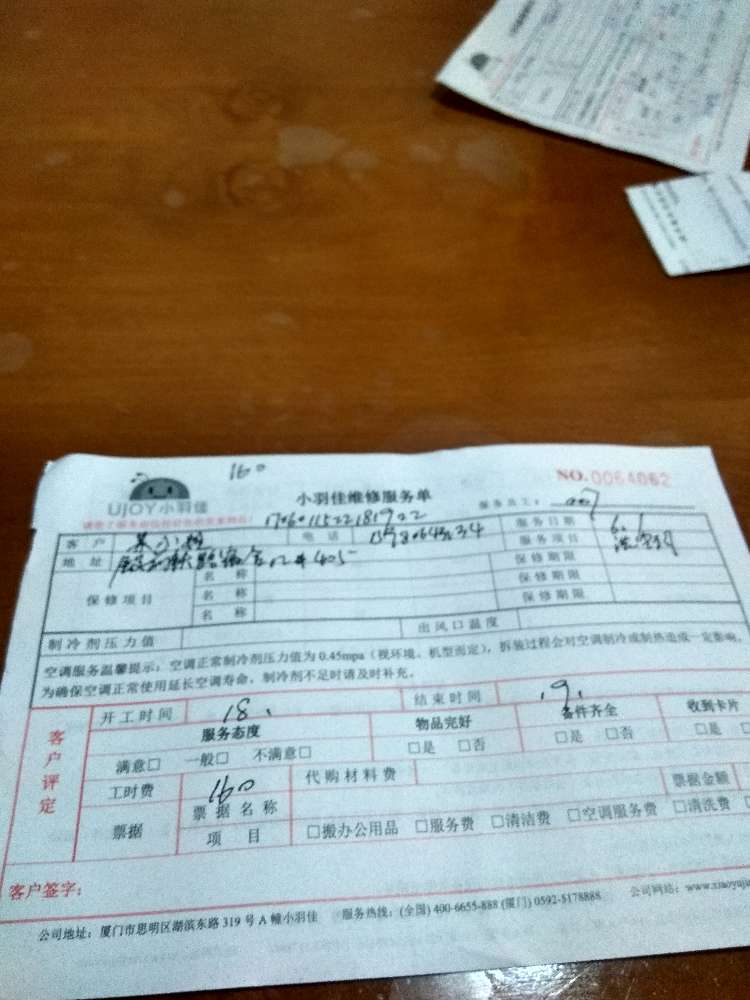 160
NO.0064062
UJOY小羽佳
小羽佳维修服务单
服务员工:
17060115221819022
客 户
电 话
服务日期
6.1
地 址
405
服务项目
保修项目
名 称
保修期限
名 称
保修期限
名 称
保修期限
制冷剂压力值
出风口温度
空调服务温馨提示:空调正常制冷剂压力值为0.45mpa(视环境、机型而定),拆装过程会对空调制冷或制热造成一定影响,
为确保空调正常使用延长空调寿命,制冷剂不足时请及时补充。
客户评定
开工时间 18:
结束时间 19:
服务态度
物品完好
备件齐全
收到卡片
满意□ 一般□ 不满意□
□是 □否
□是 □否
□是
工时费 160
代购材料费
票据
票据名称
票据金额
项 目
□搬办公用品 □服务费 □清洁费 □空调服务费 □清洗费
客户签字:
公司地址:厦门市思明区湖滨东路319号A幢小羽佳 服务热线:(全国)400-6655-888 (厦门)0592-5178888 公司网站:www.xiaoyuji